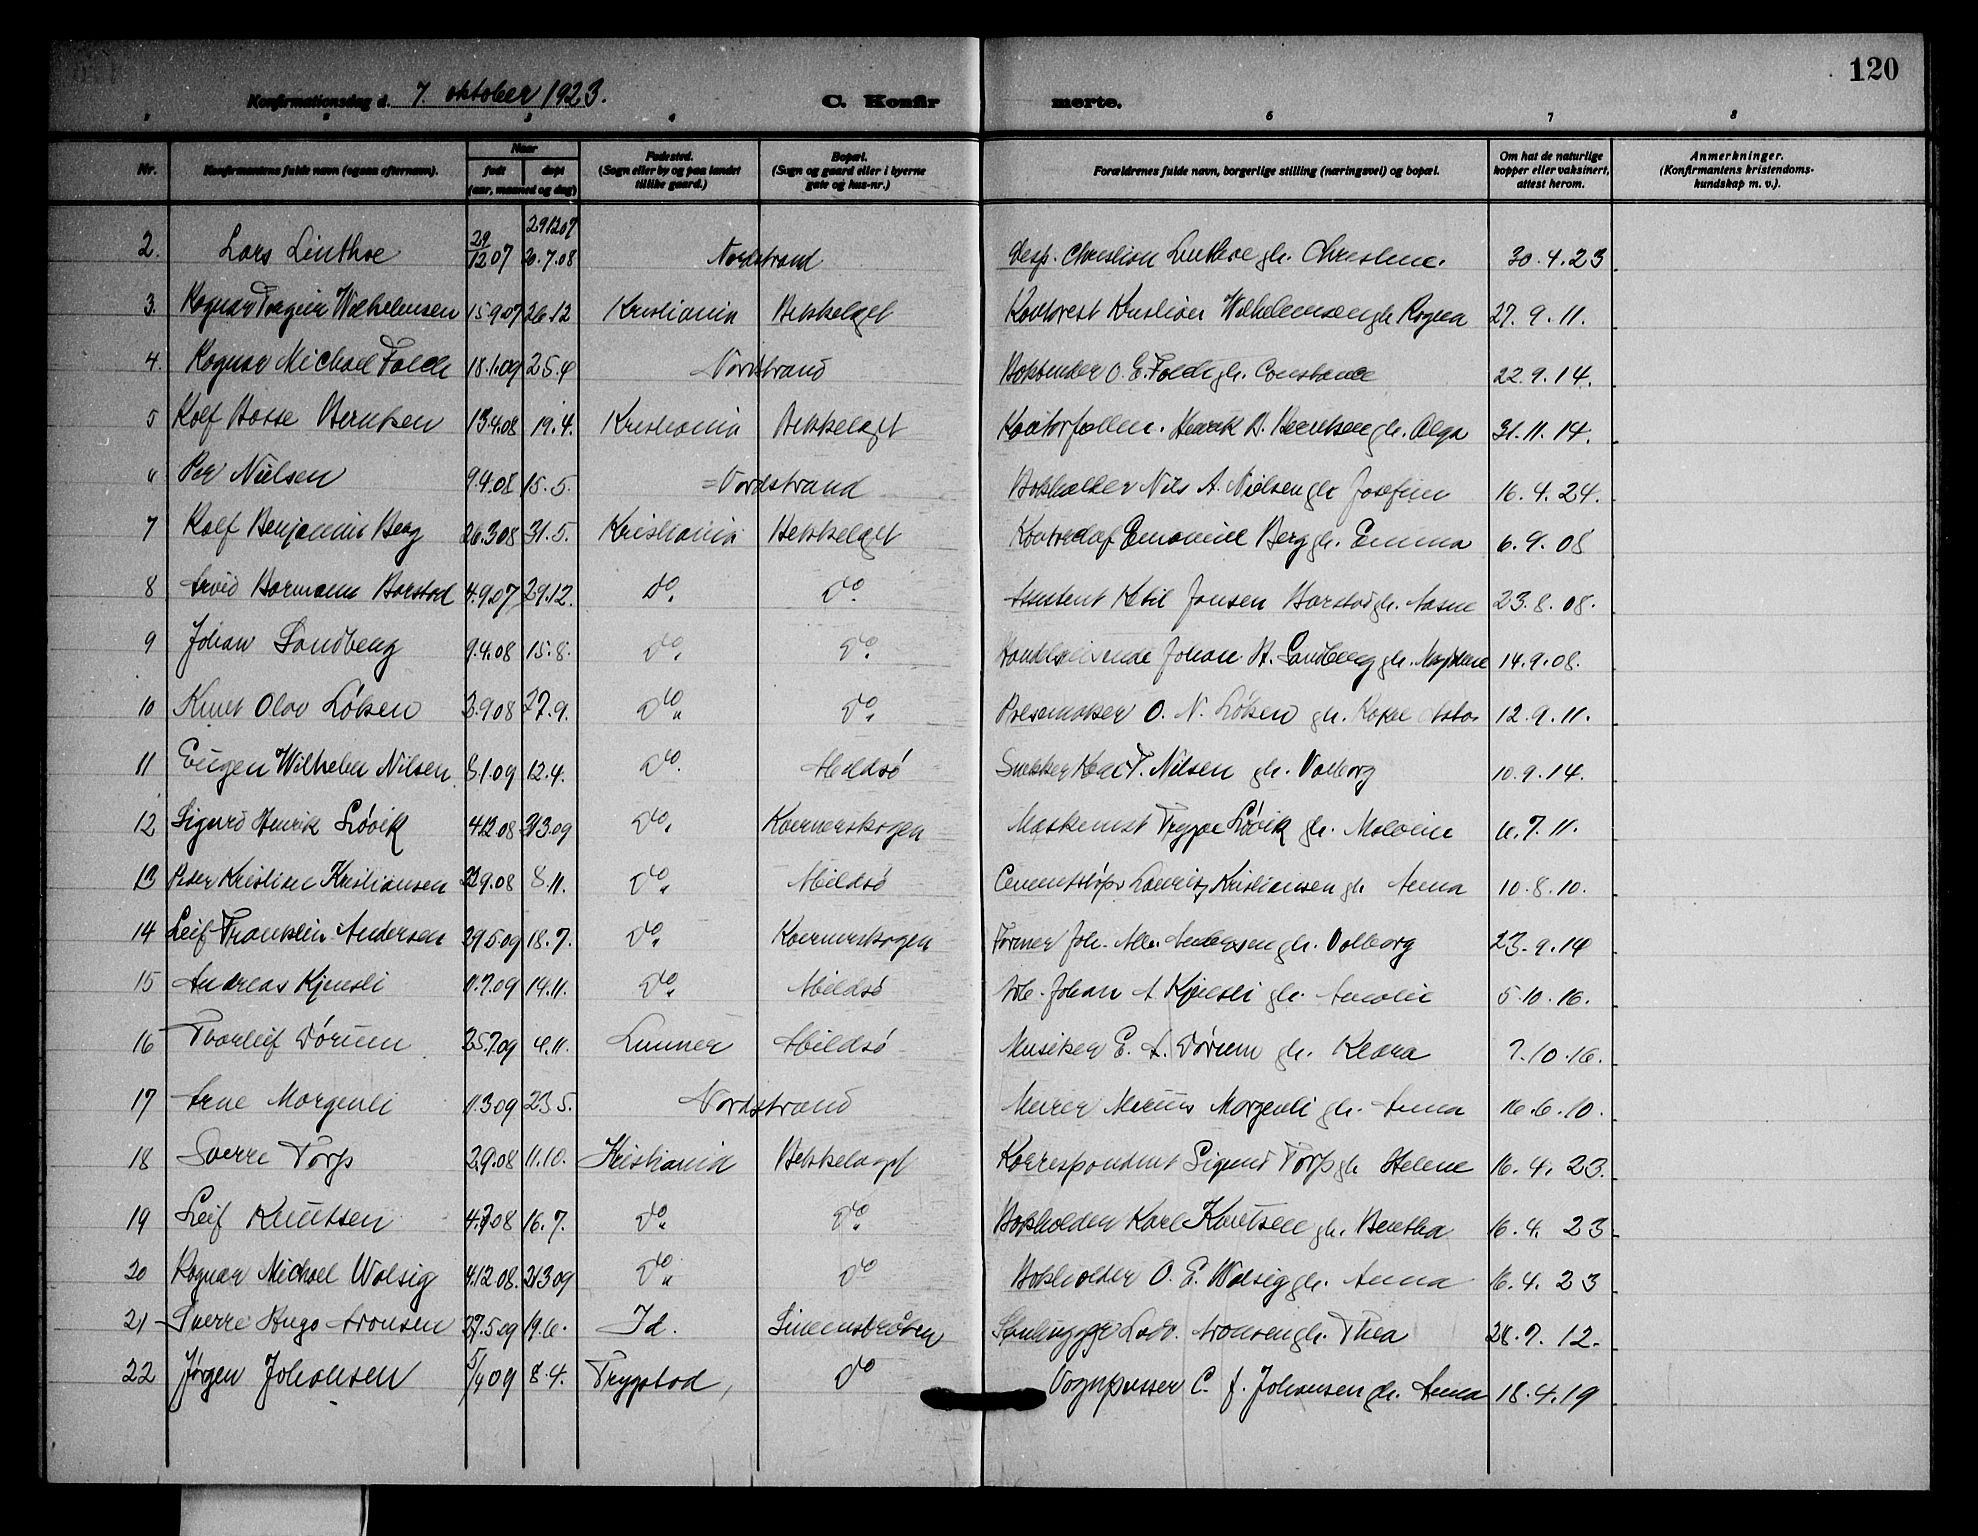 120
Konfirmationsdag d. 7. oktober 1923. C. Konfir merte.
1 2 3 4 6 7 8
Nr. Konfirmantens fulde navn (ogsaa efternavn). Naar født døpt (aar, maaned og dag) Fødested. (Sogn eller by og paa landet tillike gaard.) Bopæl. (Sogn og gaard eller i byerne gate og hus-nr.) Forældrenes fulde navn, borgerlige stilling (næringsvei) og bopæl. Om hat de naturlige kopper eller vaksinert, attest herom. Anmerkninger. (Konfirmantens kristendoms-kundskap m. v.).
2. Lars Linthoe 29/12 07 29 12 07 26.7.08 Nordstrand Desp. Christian Linthoe gh. Christine. 30.4.23
3. Ragnar Wilhelmsen 15 9 07 26.12 Kristiania Bekkelaget Kristian Wilhelmsen gh. Ragna 27.9.11.
4. Ragnar Michael Foldh 18.1.09 25.4 Nordstrand Bokbinder O. E. Foldh gh. Constance 22.9.14.
5 Rolf Basse Berntsen 13.4.08 19.4. Kristiania Bekkelaget Henrik B. Berntsen gh. Olga 31.11.14.
6 Per Nielsen 9.4.08 15.5. Nordstrand Bokholder Nils A. Nielsen gh. Josefine 16.4.24.
7 Rolf Benjamin Berg 26.3 08 31.5. Kristiania Bekkelaget Emanuel Berg gh. Emma 6.9.08
8 Arvid Bormann Barstad 4.9.07 29.12. do. do. Ketil Jonsen Barstad gh. Aasne 23.8.08.
9 Johan Sandberg 9.4.08 15.8. do. do. Handlende Johan H. Sandberg gh. 14.9.08.
10 Knut Olav Løken 3.9 08 27.9. do. do. O. N. Løken gh. 12.9.11.
11 Eugen Wilhelm Nilsen 8.1.09 12.4. do. Abildsø Snekker Karl T. Nilsen gh. Valborg 10.9.14.
12 Sigurd Henrik Løvik 4.12.08 213.09 do. Kværnerskogen Maskinist Trygve Løvik gh. Malvine 6.7.11.
13 Peder Kristian Kristiansen 9.08 8.11. do. Abildsø Cementstøper Lauritz Kristiansen gh Anna 10.8.10.
14 Leif Franklin Andersen 29.5 09 18.7. do. Kværnerskogen Former Joh. Andersen gh. Valborg 23.9.14
15 Andreas Kjensli 11.7.09 14.11. do. Abildsø Arb. Johan A Kjensli gh. Amalie 5.10.16.
16 Thorleif Dørum 25.7.09 4.11. Lunner Abildsø Musiker E. A. Dørum gh. Klara 7.10.16.
17 Arne Morgenli 11.3 09 23 5. Nordstrand Murer Marius Morgenli gh. Anna 16.6.10.
18 Sverre Torp 2.9.08 11.10. Kristiania Bekkelaget Korrespondent Sigurd Torp gh Helene 16.4.23.
19 Leif Knutsen 4.7 08 16.7. do. do. Bokholder Karl Knutsen gh. Bertha 16.4.23
20 Ragnar Michael Walsig 4.12.08. 213 09 do. do Bokholder O. E. Walsig gh. Anna 16.4.23
21 Sverre Hugo Aronsen 27.5.09 19.6. Id. Simensbråten Stenhugger Ludv. Aronsen gh. Thea 28.7.12.
22 Jørgen Johansen 5/4 09 8.4. Trygstad, do Vognpusser C. J. Johansen gh. Anna 18.4.19